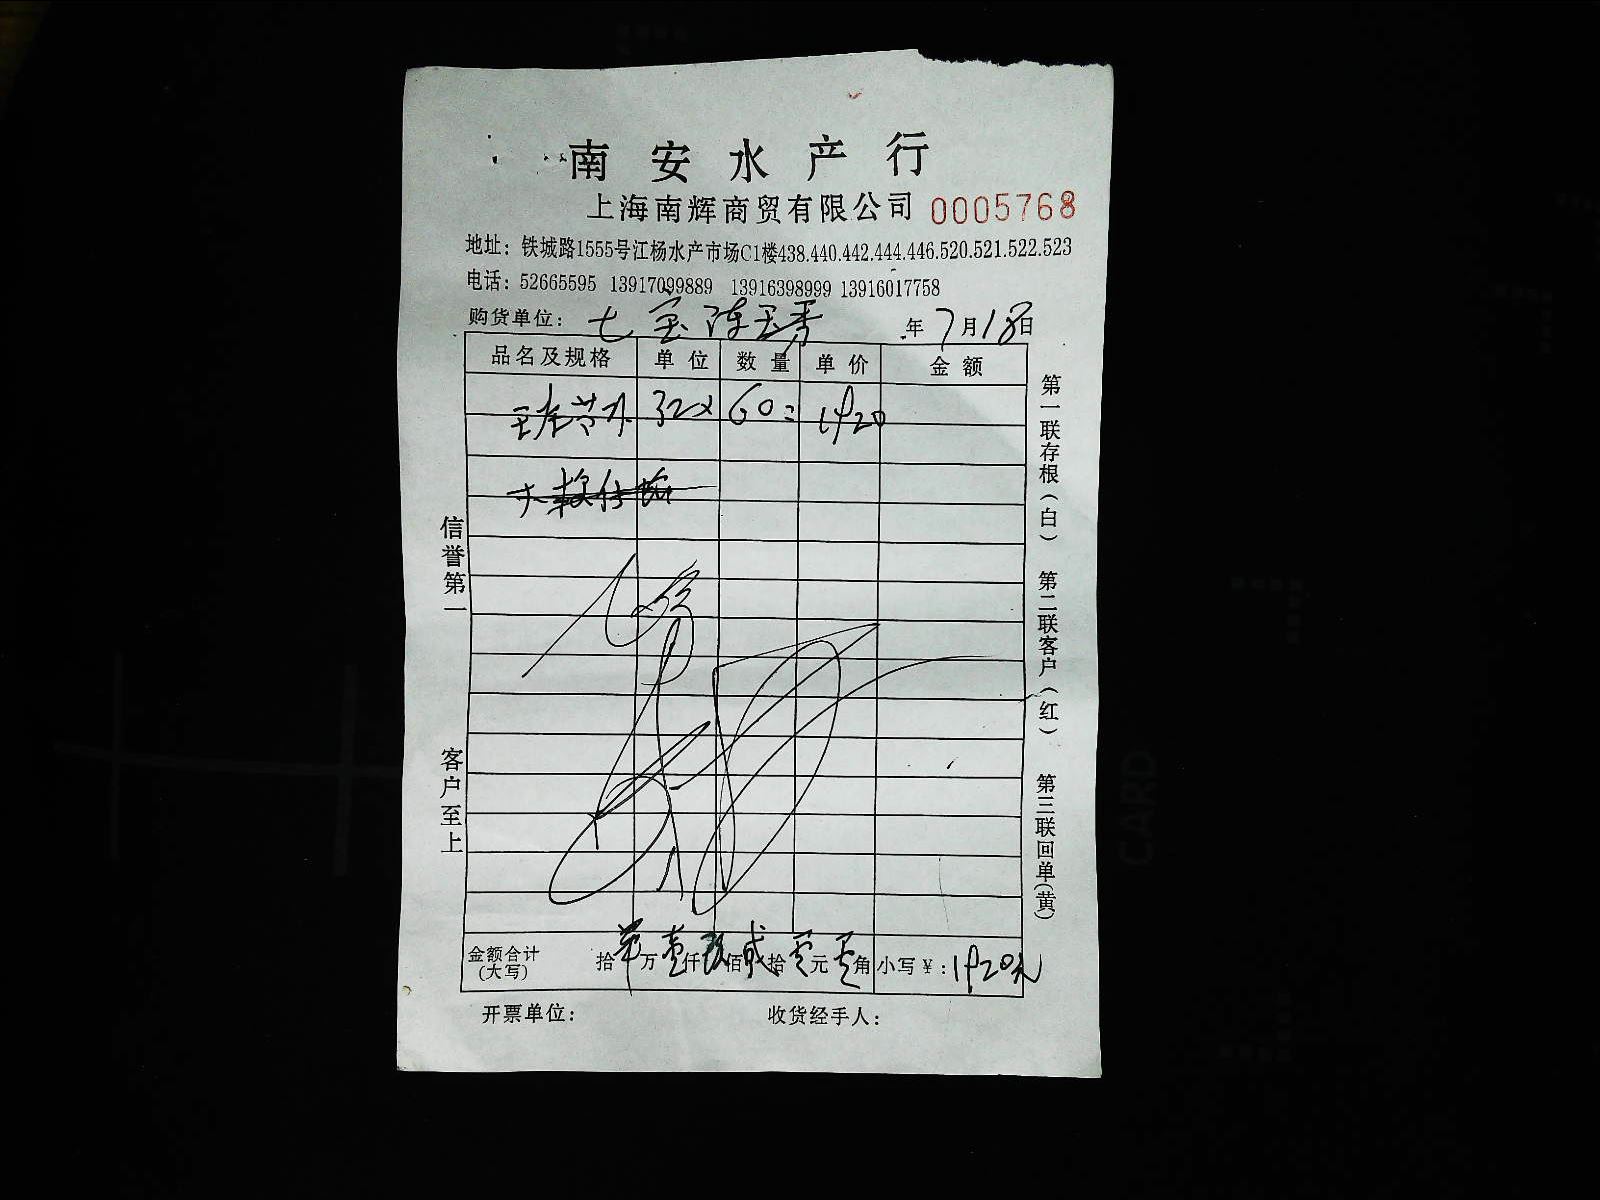 南安水产行
上海南辉商贸有限公司 0005768
地址：铁城路1555号江杨水产市场C1楼438.440.442.444.446.520.521.522.523
电话：52665595 13917099889 13916398999 13916017758
购货单位：七宝陈玉秀 年7月18日
品名及规格 单位 数量 单价 金额
32× 60= 1920
信誉第一 客户至上
第一联存根（白） 第二联客户（红） 第三联回单（黄）
金额合计（大写） 拾 万壹仟玖佰贰拾零元零角 小写￥：1920元
开票单位： 收货经手人：